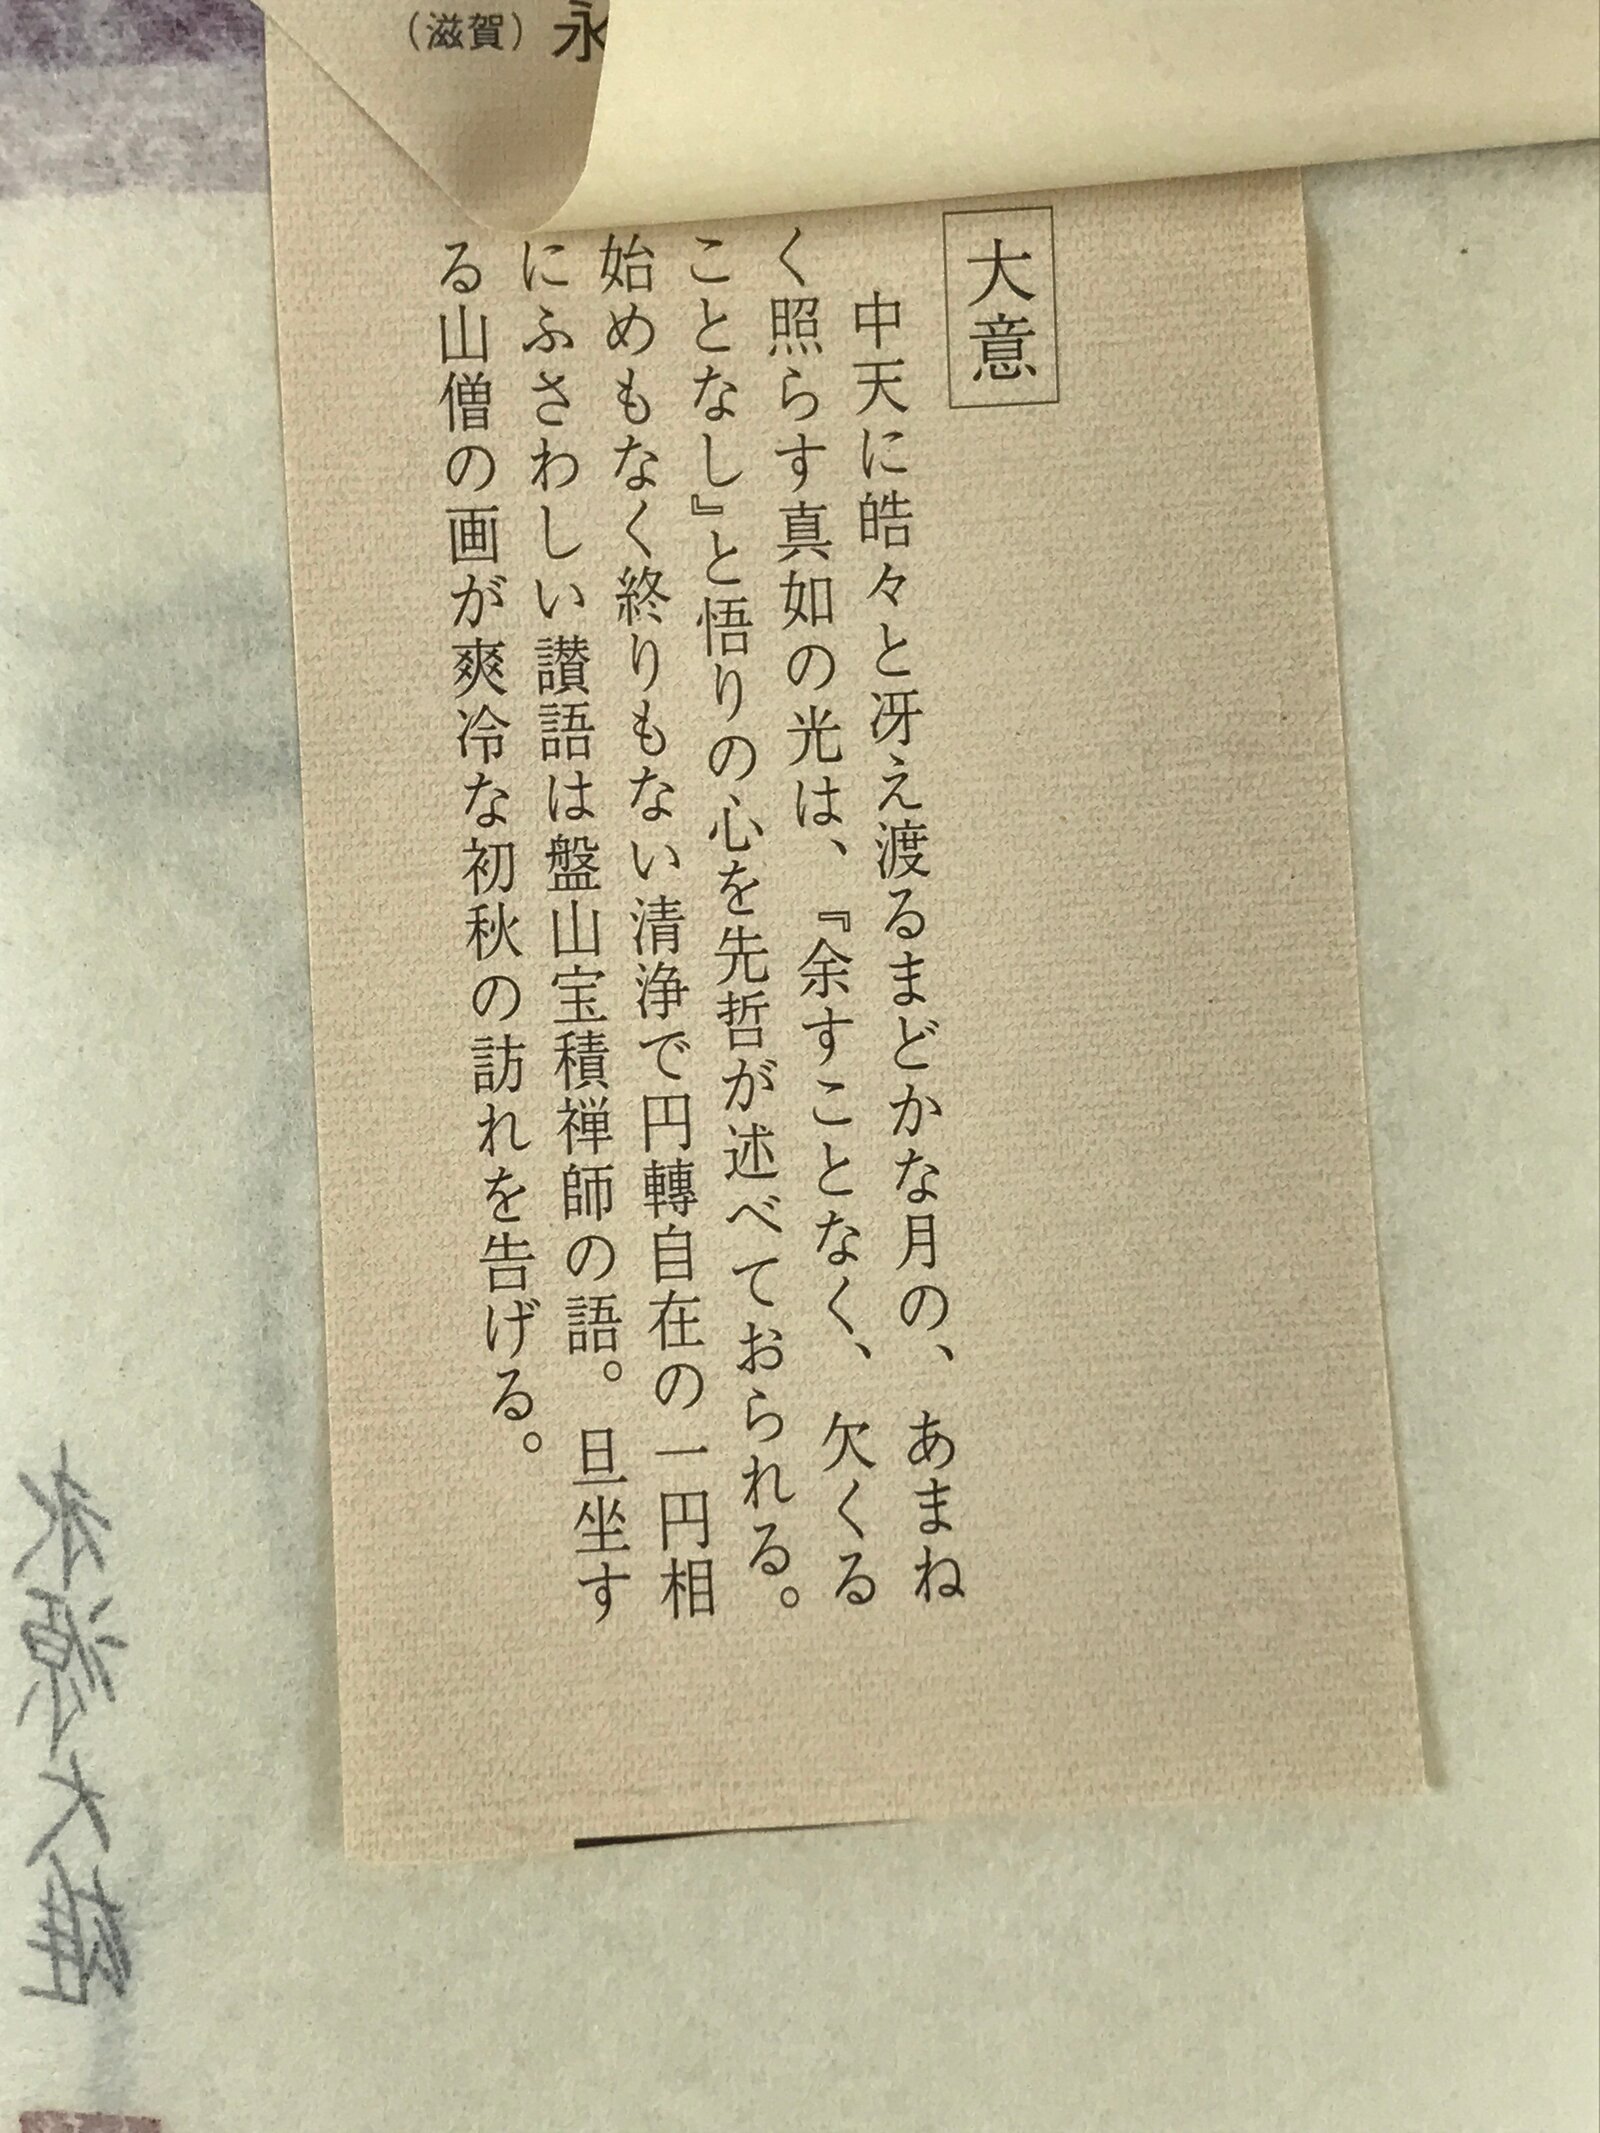 （滋賀）永
大意
中天に皓々と冴え渡るまどかな月の、あまね
く照らす真如の光は、『余すことなく、欠くる
ことなし』と悟りの心を先哲が述べておられる。
始めもなく終りもない清浄で円轉自在の一円相
にふさわしい讃語は盤山宝積禅師の語。旦坐す
る山僧の画が爽冷な初秋の訪れを告げる。
永源大雄